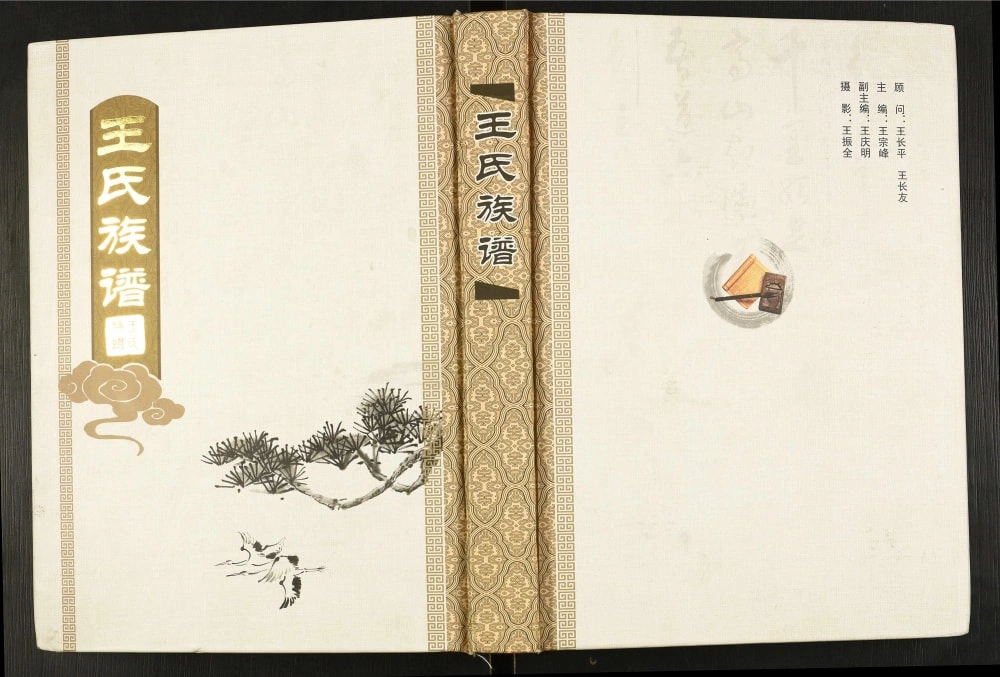 王氏族谱
王氏族谱
顾 问：王长平 王长友
主 编：王宗峰
副主编：王庆明
摄 影：王振全